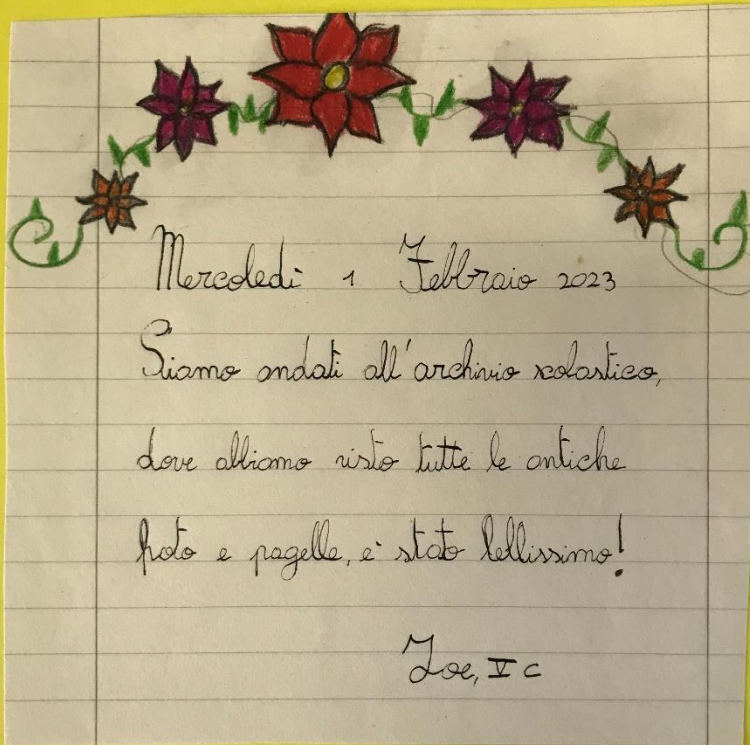 Mercoledì 1 Febbraio 2023
Siamo andati all'archivio scolastico,
dove abbiamo visto tutte le antiche
foto e pagelle, è stato bellissimo!
Zoe, V C